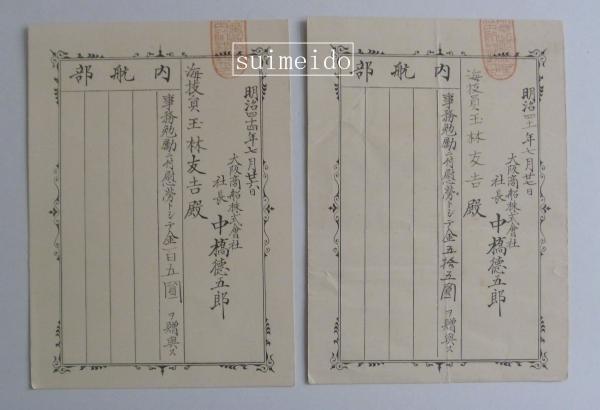 suimeido
部航内
海技員玉林友吉殿
事務勉励ニ付慰労トシテ金五拾五圓ヲ贈與ス
明治四十一年七月廿七日
大阪商船株式會社
社長 中橋徳五郎
部航内
海技員玉林友吉殿
事務勉励ニ付慰労トシテ金百五圓ヲ贈與ス
明治四十四年七月廿六日
大阪商船株式會社
社長 中橋徳五郎